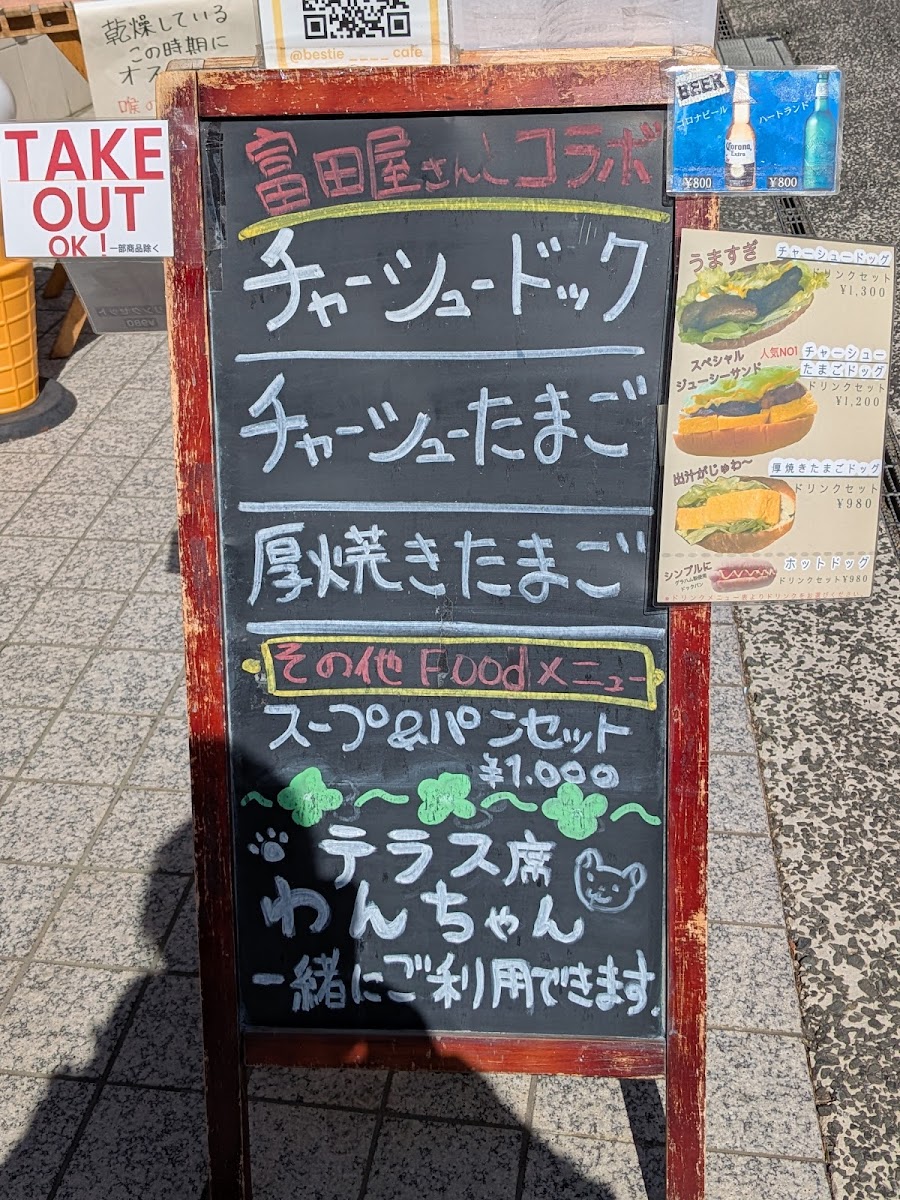 乾燥している
この時期に
@bestie ____ cafe
TAKE
OUT
OK! 一部商品除く
富田屋さんとコラボ
チャーシュードッグ
チャーシューたまご
厚焼きたまご
その他 Foodメニュー
スープ&パンセット
¥1.000
テラス席
わんちゃん
一緒にご利用できます.
BEER
コロナビール
ハートランド
Corona
Extra
¥800
¥800
うますぎ
チャーシュードッグ
ドリンクセット
¥1,300
スペシャル
ジューシーサンド
人気NO1
チャーシュー
たまごドッグ
ドリンクセット
¥1,200
出汁がじゅわ〜
厚焼きたまごドッグ
ドリンクセット
¥980
シンプルに
ホットドッグ
ドリンクセット¥980
*ドリンクメニュー表よりドリンクをお選びください